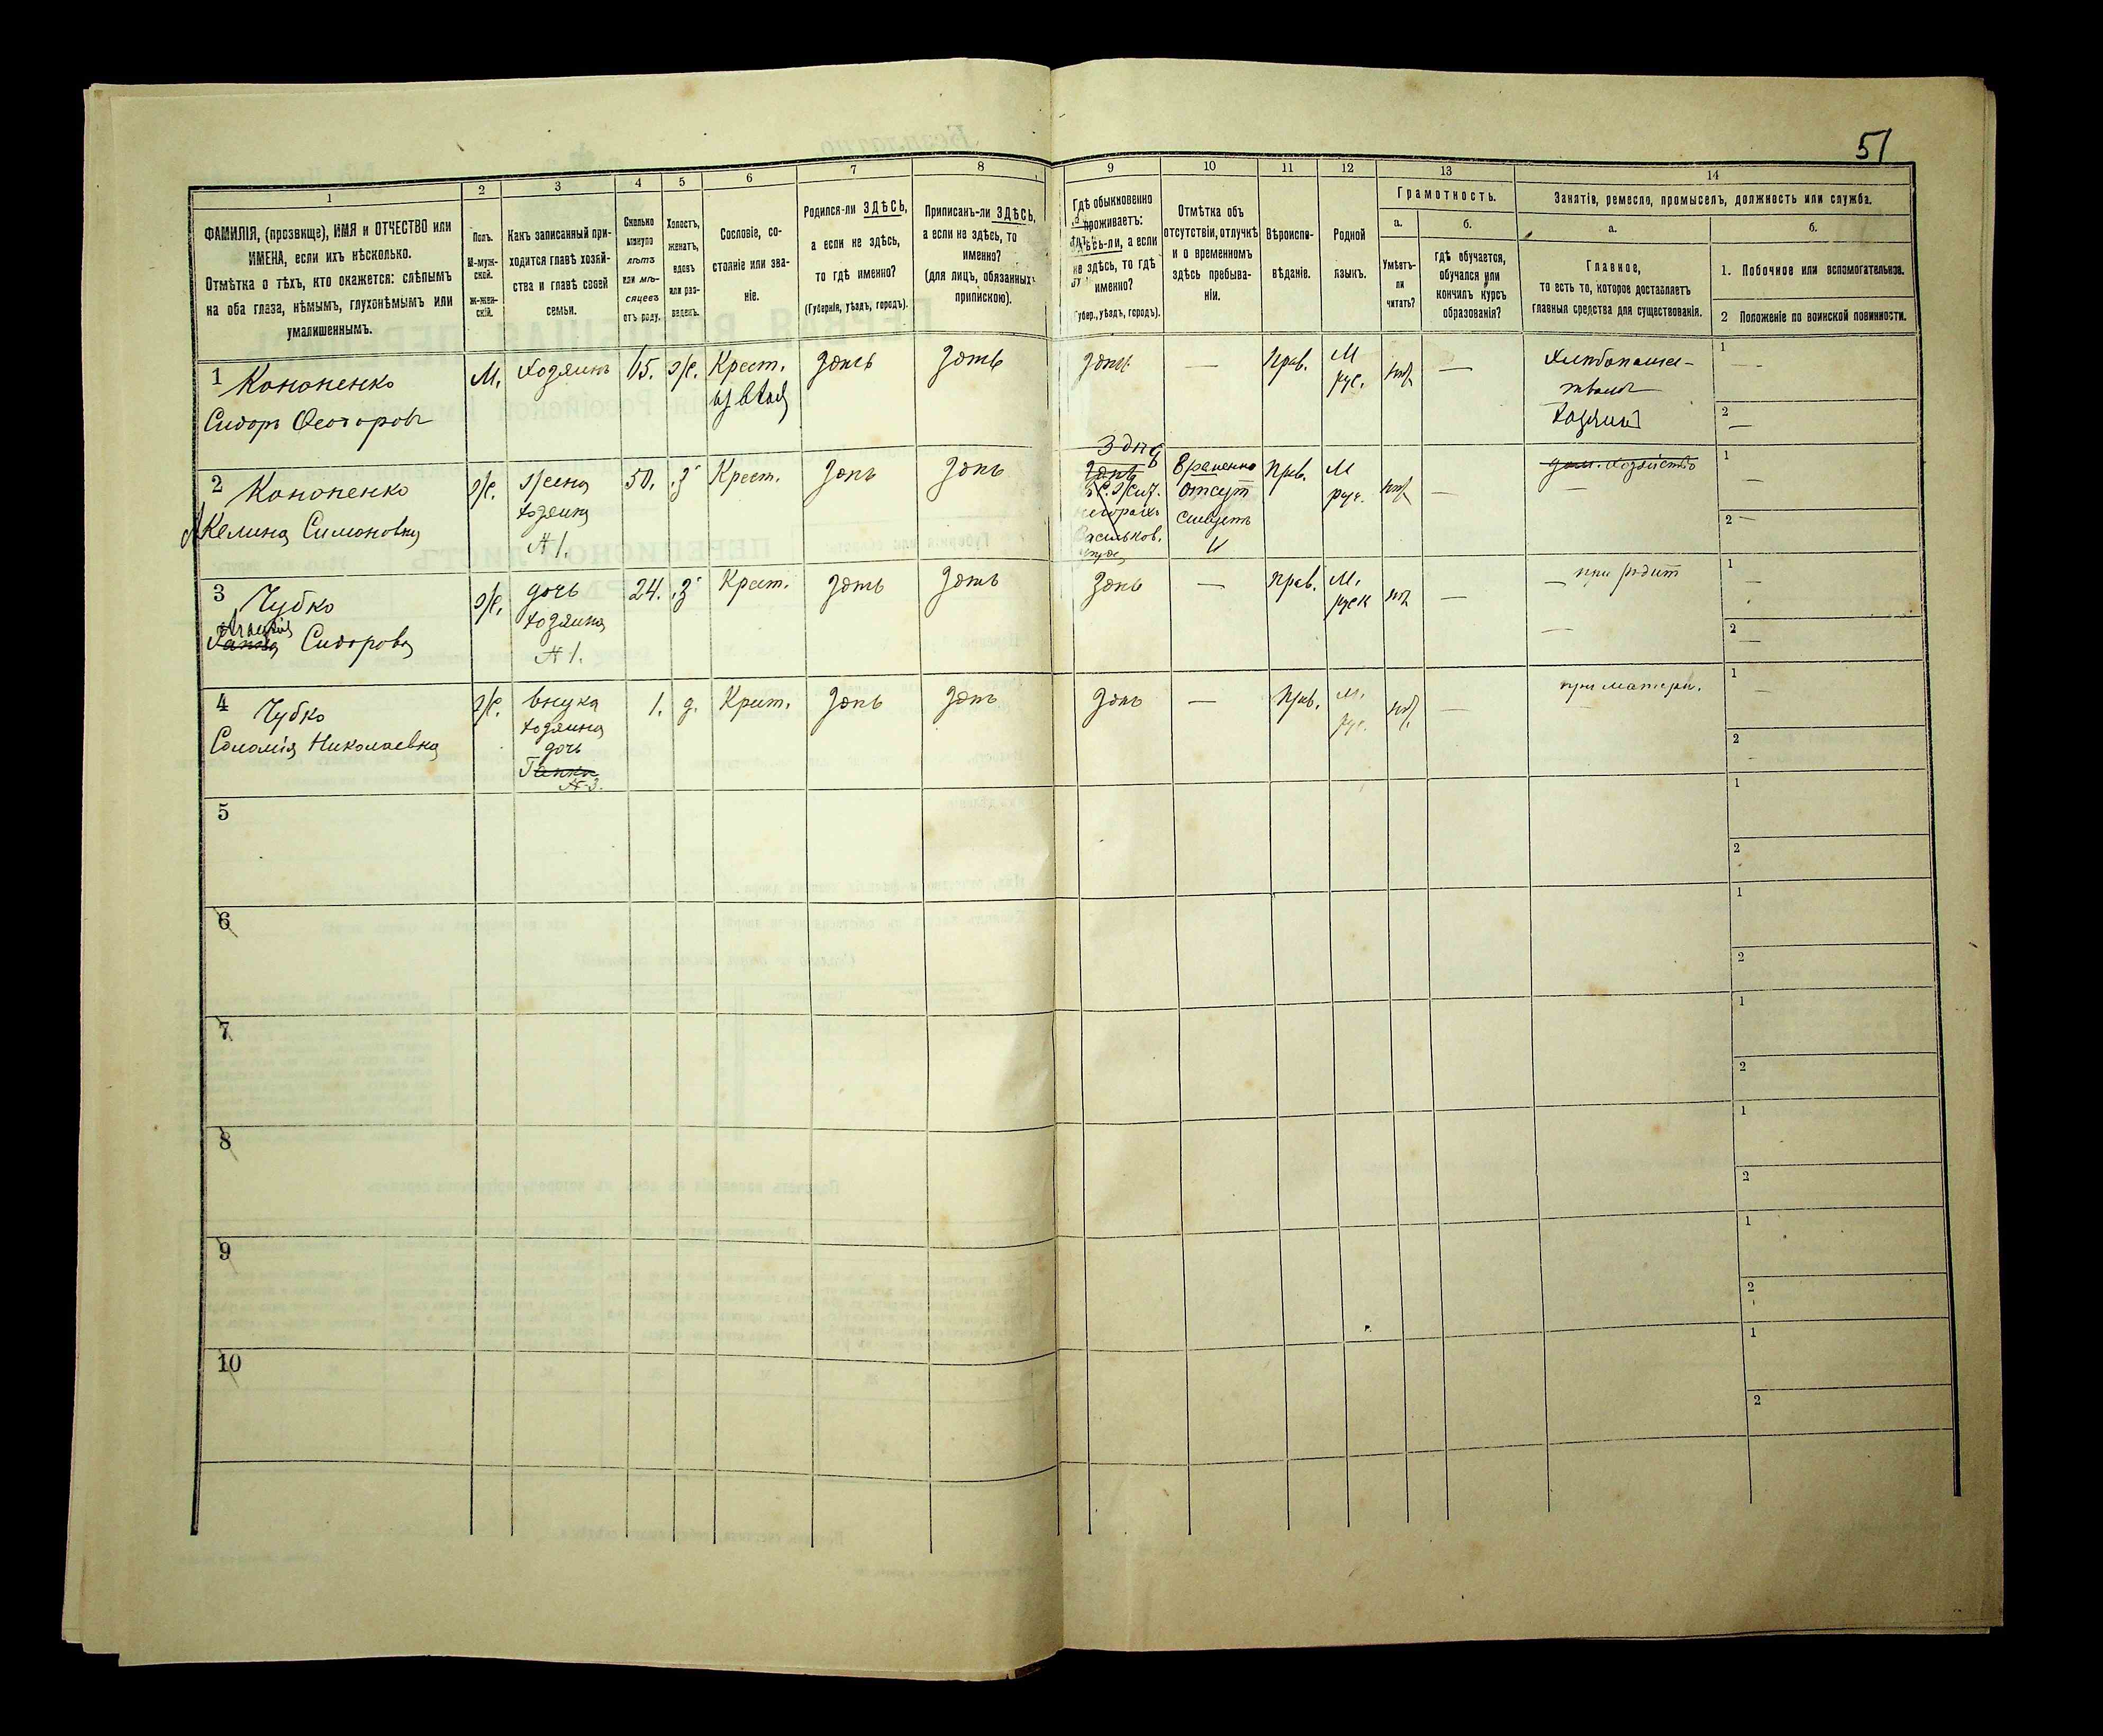 51
1 2 3 4 5 6 7 8 9 10 11 12 13 14
ФАМИЛІЯ, (прозвище), ИМЯ и ОТЧЕСТВО или
ИМЕНА, если ихъ нѣсколько.
Отмѣтка о тѣхъ, кто окажется: слѣпымъ
на оба глаза, нѣмымъ, глухонѣмымъ или
умалишеннымъ.
Полъ.
М-муж-
ской.
Ж-жен-
скій.
Какъ записанный при-
ходится главѣ хозяй-
ства и главѣ своей
семьи.
Сколько
минуло
лѣтъ
или мѣ-
сяцевъ
отъ роду.
Холостъ,
женатъ,
вдовъ
или раз-
веденъ.
Сословіе, со-
стояніе или зва-
ніе.
Родился-ли ЗДѢСЬ,
а если не здѣсь,
то гдѣ именно?
(Губернія, уѣздъ, городъ).
Приписанъ-ли ЗДѢСЬ,
а если не здѣсь, то гдѣ
именно?
(для лицъ, обязанныхъ
припискою).
Гдѣ обыкновенно
проживаетъ:
здѣсь-ли, а если
не здѣсь, то гдѣ
именно?
(Губер., уѣздъ, городъ).
Отмѣтка объ
отсутствіи, отлучкѣ
и о временномъ
здѣсь пребыва-
ніи.
Вѣроиспо-
вѣданіе.
Родной
языкъ.
Грамотность.
а. б.
Умѣетъ-
ли
читать?
гдѣ обучается,
обучался или
кончилъ курсъ
образованія?
Занятія, ремесло, промыселъ, должность или служба.
а. б.
Главное,
то есть то, которое доставляетъ
главныя средства для существованія.
1. Побочное или вспомогательное.
2 Положеніе по воинской повинности.
1 Кононенко
Сидоръ Ѳеодоровъ
М. хозяинъ 65. ж. Крест. здѣсь здѣсь здѣсь — прав. М рус. — хозяинъ
1 —
2 —
2 Кононенко
Акелина Симоновна
ж. жена
хозяина
№ 1.
50. з Крест. здѣсь здѣсь
здѣсь
Васильков.
Временно
отсут
прав. М рус. — дом. хозяйство
1 —
2 —
3 Чубко
Ганна Сидорова
ж. дочь
хозяина
№ 1.
24. з Крест. здѣсь здѣсь здѣсь — прав. М. руск — при родит
1 —
2 —
4 Чубко
Соломія Николаевна
ж. внука
хозяина
дочь
Ганки
№ 3.
1. д. Крест. здѣсь здѣсь здѣсь — прав. М. рус. — при матери.
1 —
2 -
5 1
2
6 1
2
7 1
2
8 1
2
9 1
2
10 1
2